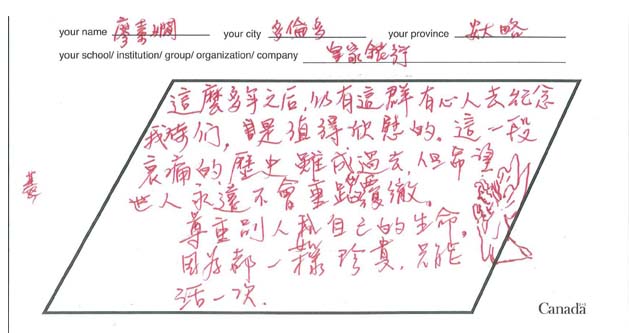 your name 廖素嫻 your city 多倫多 your province 安大略
your school/ institution/ group/ organization/ company 皇家銀行
這麼多年之后，仍有這群有心人去纪念
我們，是值得欣慰的。這一段
哀痛的歷史難成過去，但希望
世人永遠不會重蹈覆轍。
尊重别人和自己的生命，
因为都一樣珍貴，只能
活一次.
Canada